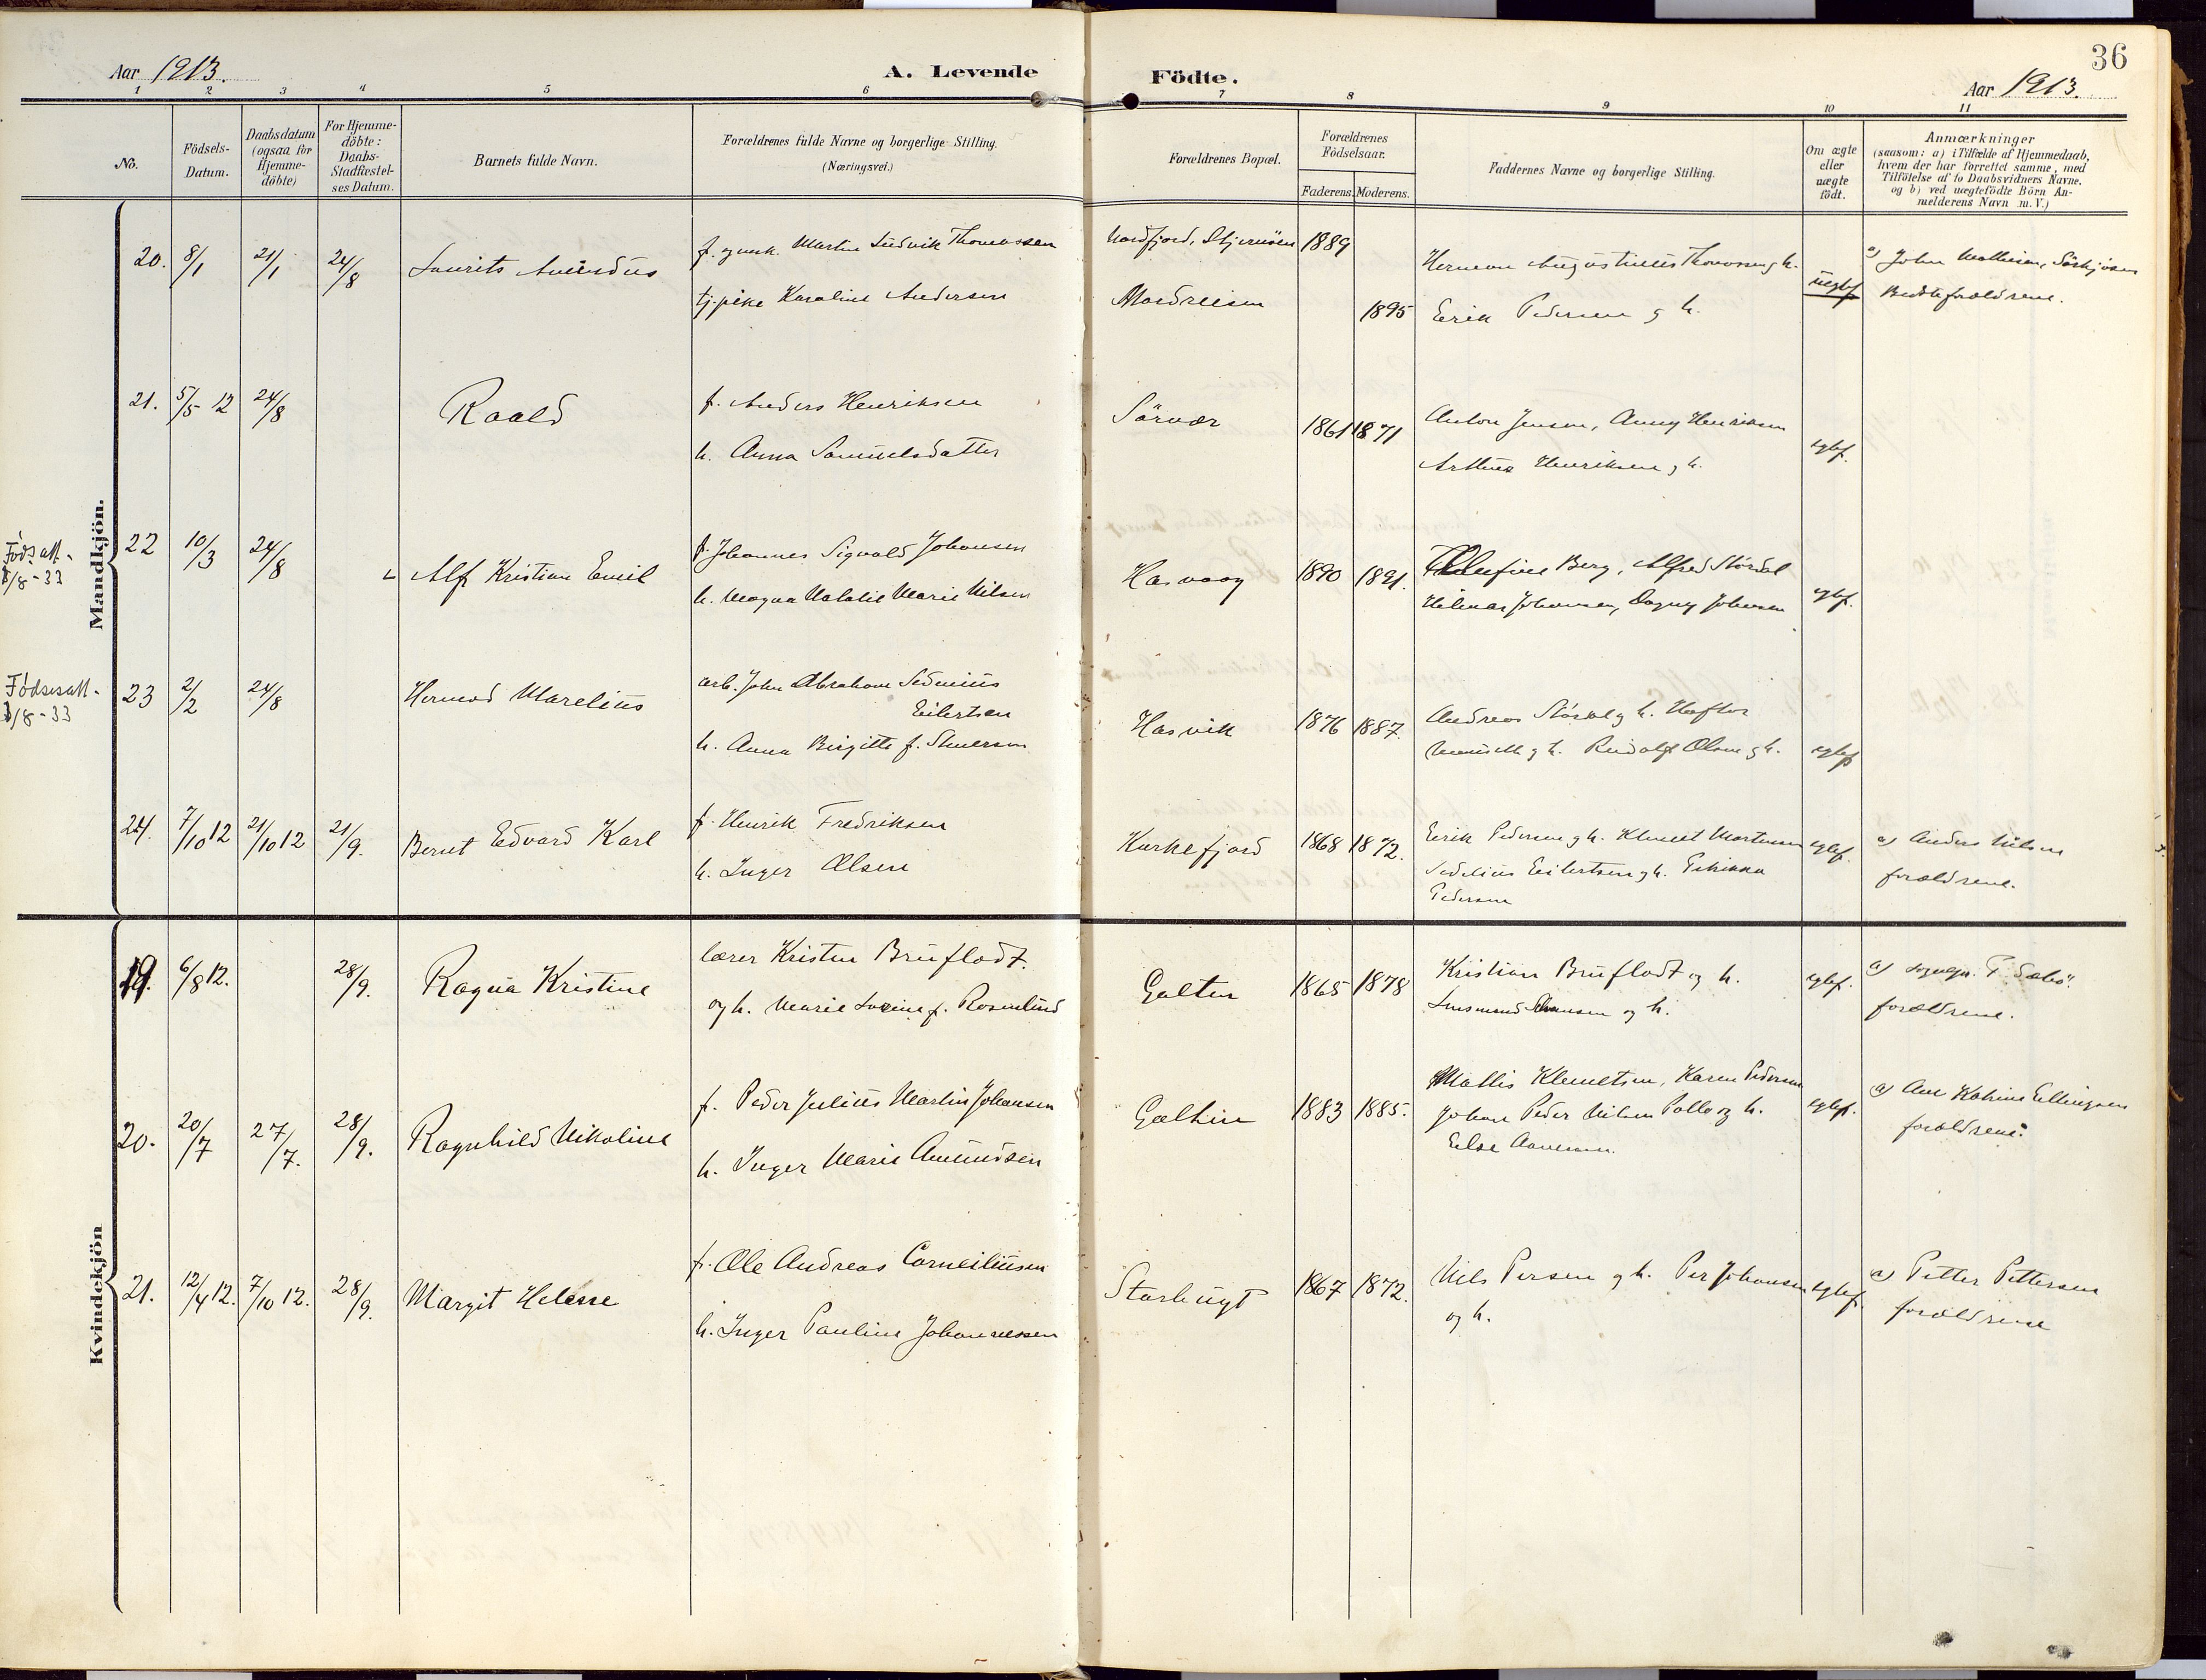 36
Aar 1913.
A. Levende Födte.
Aar 1913.
1 2 3 4 5 6 7 8 9 10 11
No.
Födsels-Datum.
Daabsdatum (ogsaa for Hjemme-döbte)
For Hjemme-döbte: Daabs-Stadfæstel-ses Datum.
Barnets fulde Navn.
Forældrenes fulde Navne og borgerlige Stilling.
(Næringsvei.)
Forældrenes Bopæl.
Forældrenes Födselsaar.
Faderens. Moderens.
Faddernes Navne og borgerlige Stilling.
Om ægte eller uægte födt.
Anmærkninger
(saasom: a) i Tilfælde af Hjemmedaab,
hvem der har forrettet samme, med
Tilföielse af to Daabsvidners Navne.
og b) ved uægtefödte Börn An-
melderens Navn m. V.)
Mandkjön.
20. 8/1 21/1 24/8 Laurits Amandus
f. og unk. Martin Ludvik Thomassen
tj. pike Karoline Andersen
Nordfjord, Stjernöen 1889
Nordreisen 1895
Herman Augustinus Thomassen g h.
Erik Pedersen g h.
uegtef
a) John Mathisen, Sörkjosen
Bedsteforældrene.
21. 5/5 12 24/8 Roald
f. Anders Henriksen
h. Anna Samuelsdatter
Sörvær 1861 1871
Anton Jensen, Anny Henriksen
Arthur Henriksen g h.
egtef.
Föds.att.
1/8-33
22 10/3 24/8 Alf Kristian Emil
f. Johannes Sigvald Johansen
h. Magna Natalie Marie Nilsen
Hasvaag 1890 1891.
Olufine Berg, Alfred Stördal
Hilmar Johansen, Dagny Johansen
egtef.
Födselsatt.
1/8-33
23 2/2 24/8 Hermod Marelius
arb. John Abraham Sedenius
Eilertsen
h. Anna Birgitte f.
Hasvik 1876 1887.
Andreas Stördal g h. Haftor
g h. Rudolf Olsen g h.
egtef
24. 7/10 12 21/10 12 21/9. Bernt Edvard Karl
f. Henrik Fredriksen
h. Inger Olsen
Kurkefjord 1868 1872.
Erik Pedersen g h. Klemet Mortensen
Sedelius Eilertsen g h.
Pedersen
egtef.
a) Anders Nilsen
forældrene.
Kvindekjön
19. 6/8 12. 28/9. Ragna Kristine
lærer Kristen Brufladt.
og h. Marie Lovine f. Rosenlund
Galten 1865 1878
Kristian Brufladt og h.
Hansen og h.
egtef.
a) sognepr. P. Sabö.
forældrene.
20. 20/7 27/7. 28/9. Ragnhild Nikoline
f. Peder Julius Martin Johansen
h. Inger Marie Amundsen
Galten 1883 1885.
Mattis Klemetsen, Karen Pedersen
Johan Peder Nilsen Palla og h.
Else
egtef.
a) Ane Katrine Ellingsen
forældrene.
21. 12/4 12. 7/10 12. 28/9. Margit Helene
f. Ole Andreas Corneiliusen
h. Inger Pauline Johannessen
Storbugt 1867 1872.
Nils Persen g h. Per Johansen
og h.
egtef.
a) Petter Pettersen
forældrene